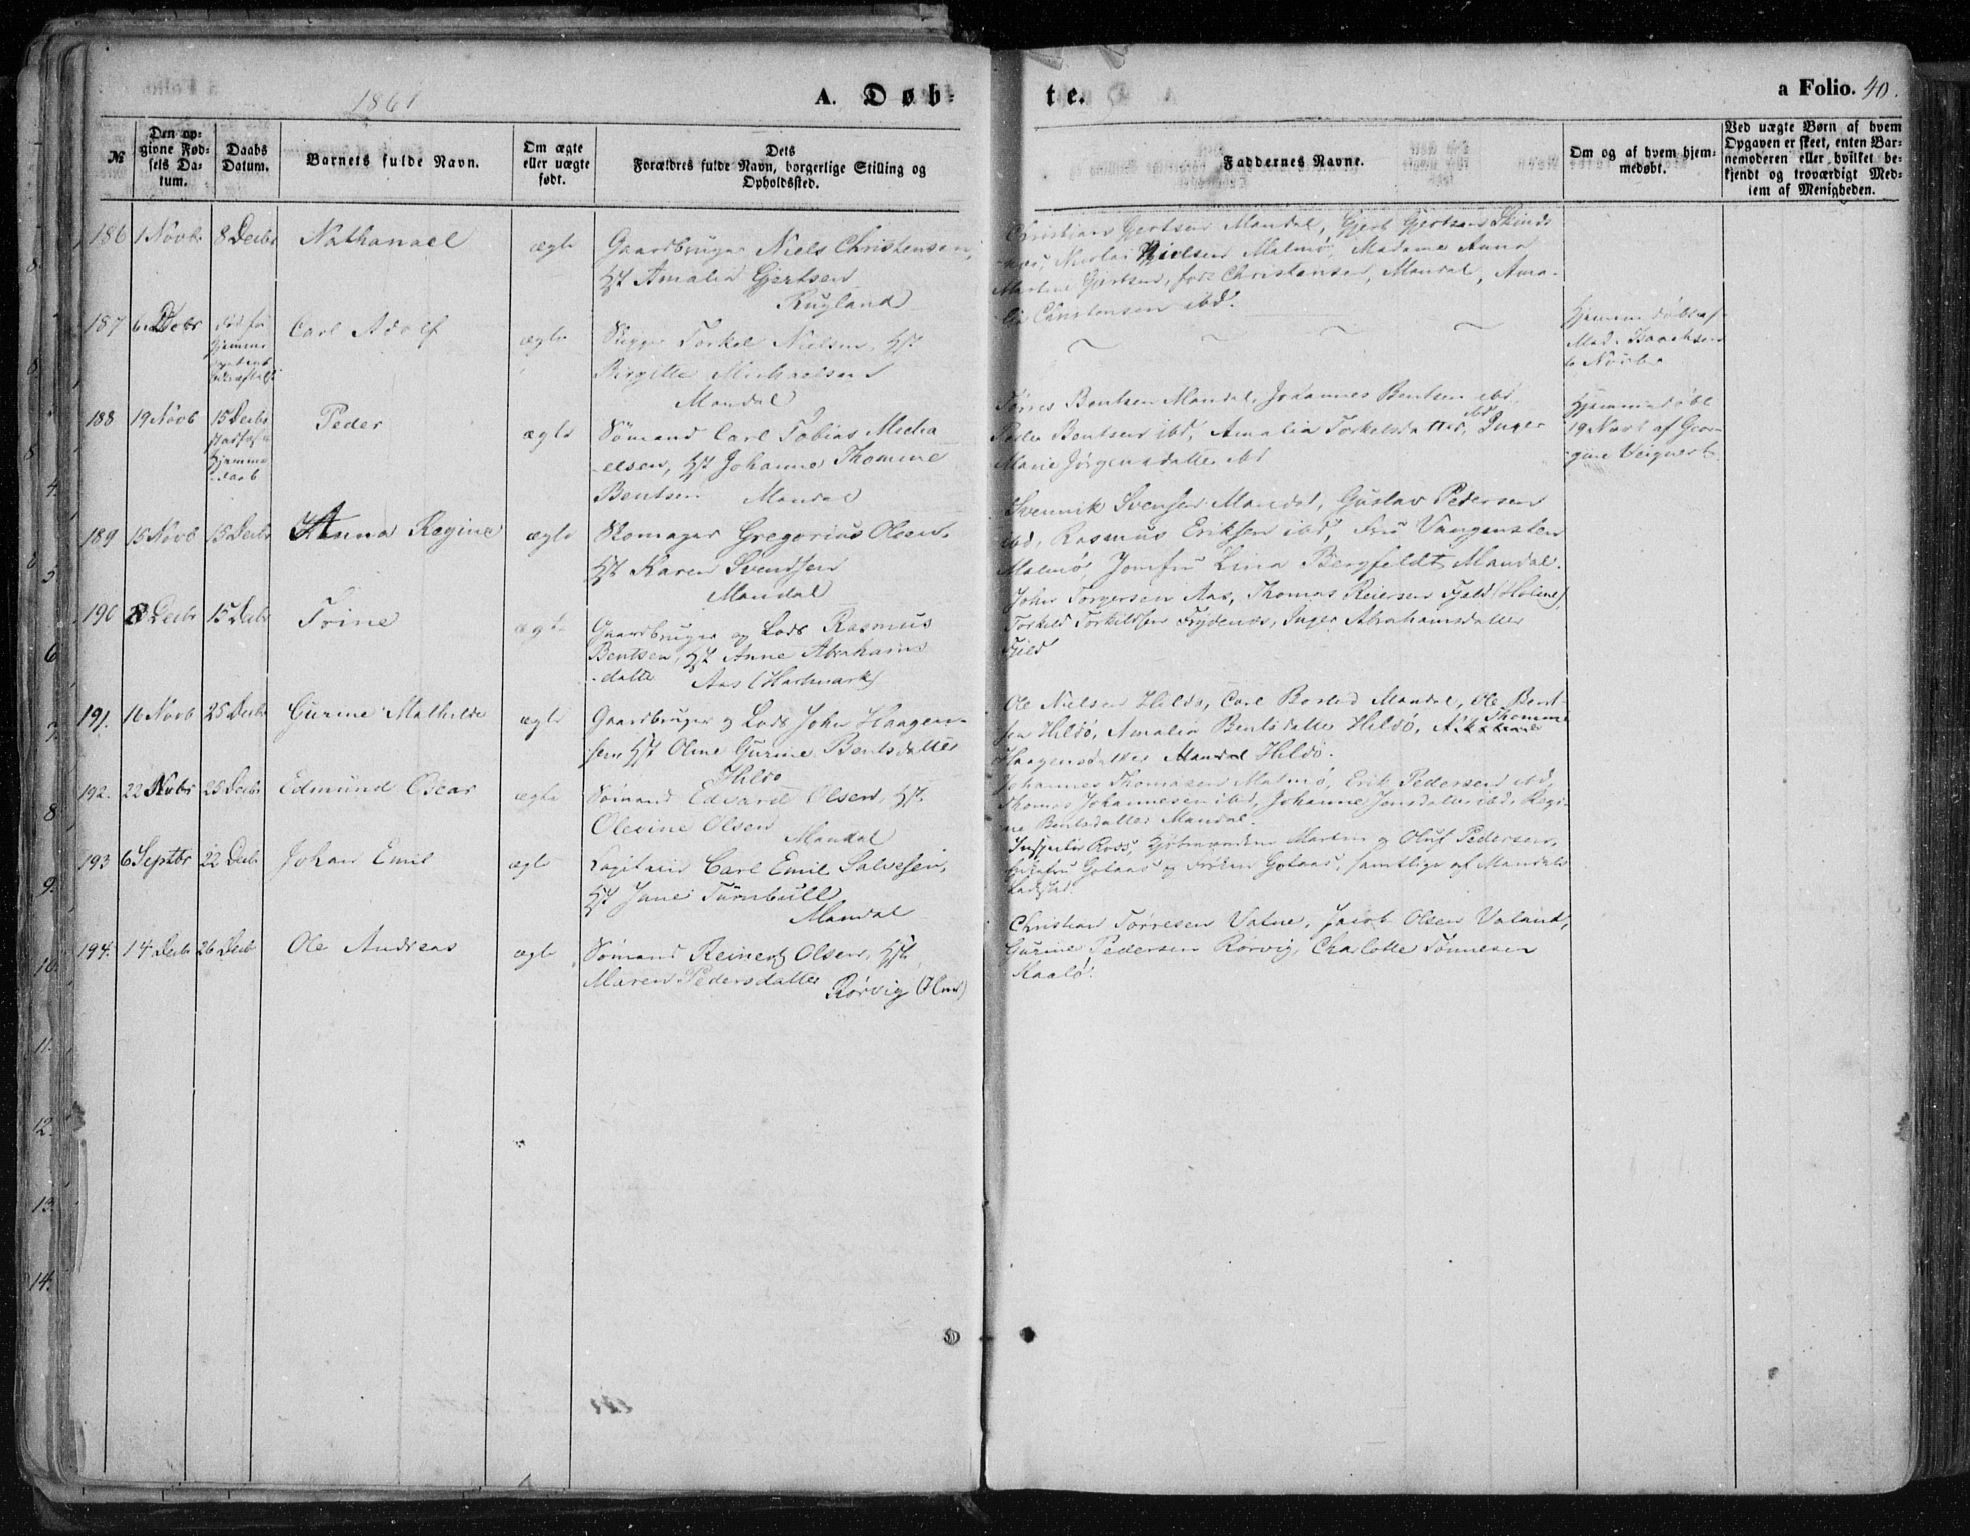 1861
A. Døb-
te.
a Folio. 40.
№
Den op-
givne Fød-
sels Da-
tum.
Daabs
Datum.
Barnets fulde Navn.
Om ægte
eller uægte
født.
Dets
Forældres fulde Navn, borgerlige Stilling og
Opholdssted.
Faddernes Navne.
Om og af hvem hjem-
medøbt.
Ved uægte Børn af hvem
Opgaven er skeet, enten Bar-
nemoderen eller hvilket be-
kjendt og troværdigt Med-
lem af Menigheden.
186 1 Novb 8 Decbr Nathanael ægte Gaardbruger Niels Christensen,
Hst Amalia Gjertsen
Rugland
Christian Gjertsen Mandal, Gjert Gjertsen
Nicolai Nielsen Malmø, Madame Anna
Martine Gjertsen, født Christensen, Mandal, Ama-
lia Christensen ibd.
187 6 Carl Adolf ægte Torkel Nielsen, Hst
Birgitte Michaelsen
Mandal
Hjemmedøbt af
Mad. Isaachsen
6 Novbr
188 19 Novb 15 Decbr Peder ægte Sømand Carl Tobias Micha
Hjemme
daab
-elsen, Hst Johanne Thomine
Bentsen Mandal
Tørres Bentsen Mandal, Johannes Bentsen ibd,
Peder Bentsen ibd, Amalia Torkelsdatter ibd, Inger
Marie Jørgensdatter ibd
Hjemmedøbt
19 Novb af Geor-
gine Weignert.
189 15 Novb 15 Decbr Anna Regine ægte Skomager Gregorius Olsen,
Hst Karen Svendsen
Mandal
Svennik Svensen Mandal, Gustav Pedersen
ibd, Rasmus Eriksen ibd, Fru Vangensten
Malmø, Jomfru Lina Bergfeldt Mandal.
190 8 Decbr 15 Decbr Trine ægte Gaardbruger og Lods Rasmus
Bentsen, Hst Anne Abrahams
-datter Aas (Hartmark)
John Torgersen Aas, Thomas Reiersen Fjeld (Holme),
Torkild Torkildsen Frydenæs, Inger Abrahamsdatter
Fjeld
191. 16 Novb 25 Decbr Gurine Mathilde ægte Gaardbruger og Lods John Haagen-
sen, Hst Oline Gurine Bentsdatter
Hildø
Ole Nielsen Hildø, Carl Mandal, Ole Bent
sen Hildø, Amalia Bentsdatter Hildø, Thomine
Haagensdatter Mandal Hildø.
192. 22 Novbr 25 Decbr Edmund Oscar ægte Sømand Edvard Olsen, Hst
Olevine Olsen
Mandal
Johannes Thomasen Malmø, Erik Pedersen ibd,
Thomas Johannesen ibd, Johanne Jensdatter ibd, Regi-
ne Bentsdatter Mandal.
193 6 Septbr 22 Decbr Johan Emil ægte Capitain Carl Emil Salvesen,
Hst Jane Turnbull
Mandal
Inspectør Ross, Kjøbmændene Morten og Oluf Pedersen,
Gotaas og Frøken Gotaas, samtlige af Mandals
Ladsted
194. 14 Decbr 26 Decbr Ole Andreas ægte Sømand Reinert Olsen, Hst
Maren Pedersdatter Rørvig (Hart)
Christian Tørresen Vatne, Jacob Olsen Valand,
Gurine Pedersen Rørvig, Charlotte Tønnesen
Skaalø.
4.
5
6
7.
8
9.
10.
11.
12.
13.
14.